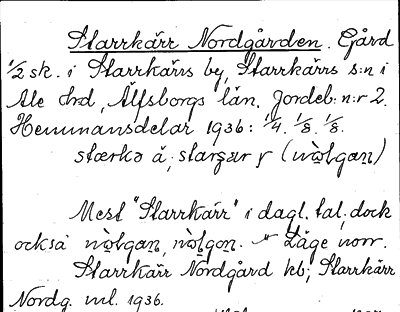 Starrkärr Nordgården. Gård
1/2 sk. i Starrkärrs by, Starrkärrs s:n i
Ale hd, Älfsborgs län. Jordeb: n:r 2.
Hemmansdelar 1936: 1/4. 1/8. 1/8.
Mest "Starrkärr" i dagl. tal; dock
också Läge norr.
Starrkärr Nordgård kb; Starrkärr
Nordg. ml. 1936.